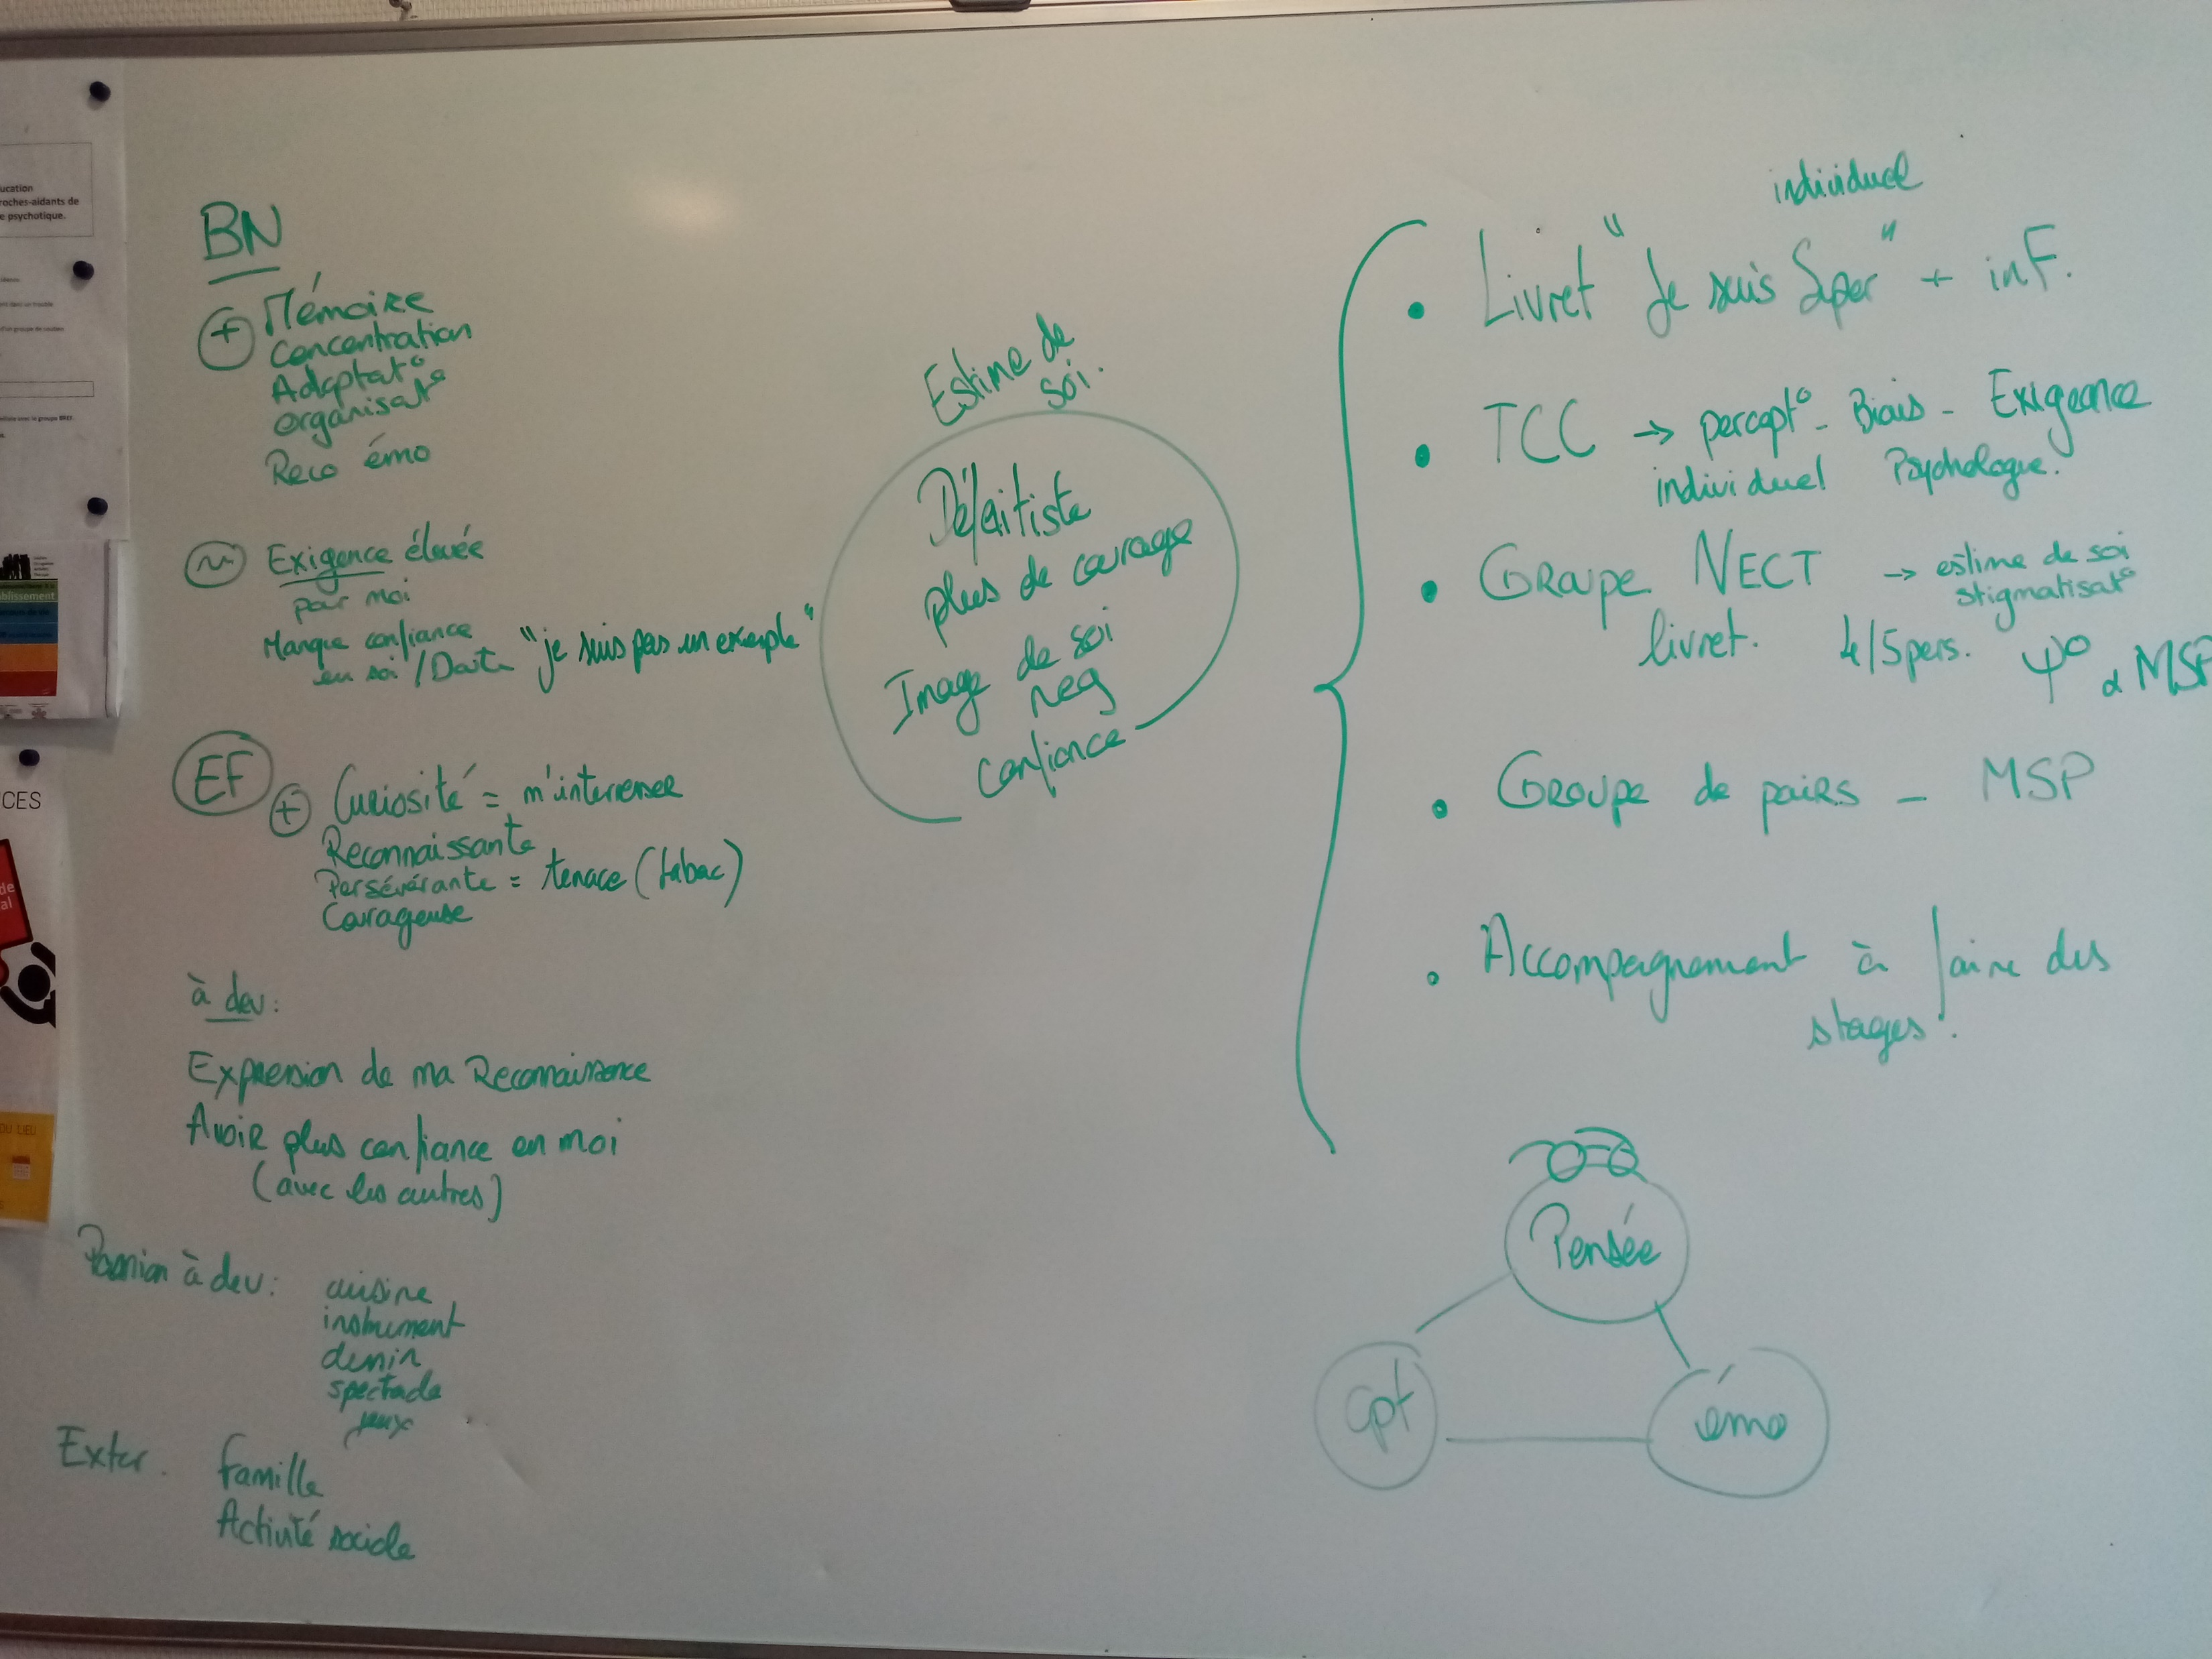 ucation
roches-aidants de
e psychotique.
blissement
CES
de
al
DU LIEU
BN
+ Mémoire
Concentration
Adaptat°
Organisat°
Reco émo
~ Exigence élevée
pour moi
Manque confiance
en soi / Doute "je suis pas un exemple"
EF
+ Curiosité = m'interesser
Reconnaissante
Persévérante = tenace (tabac)
Courageuse
à dev :
Expression de ma Reconnaissance
Avoir plus confiance en moi
(avec les autres)
Passion à dev : cuisine
instrument
dessin
spectacle
jeux
Exter. famille
Activité sociale
Estime de
soi.
Défaitiste
plus de courage
Image de soi
neg
confiance
individuel
• Livret "Je suis Super" + inF.
• TCC → percept° - Biais - Exigeance
individuel Psychologue.
• Groupe NECT → estime de soi
stigmatisat°
livret. 4/5 pers. ψ° MSP
• Groupe de pairs - MSP
• Accompagnement à faire des
stages.
Pensée
cpt
émo